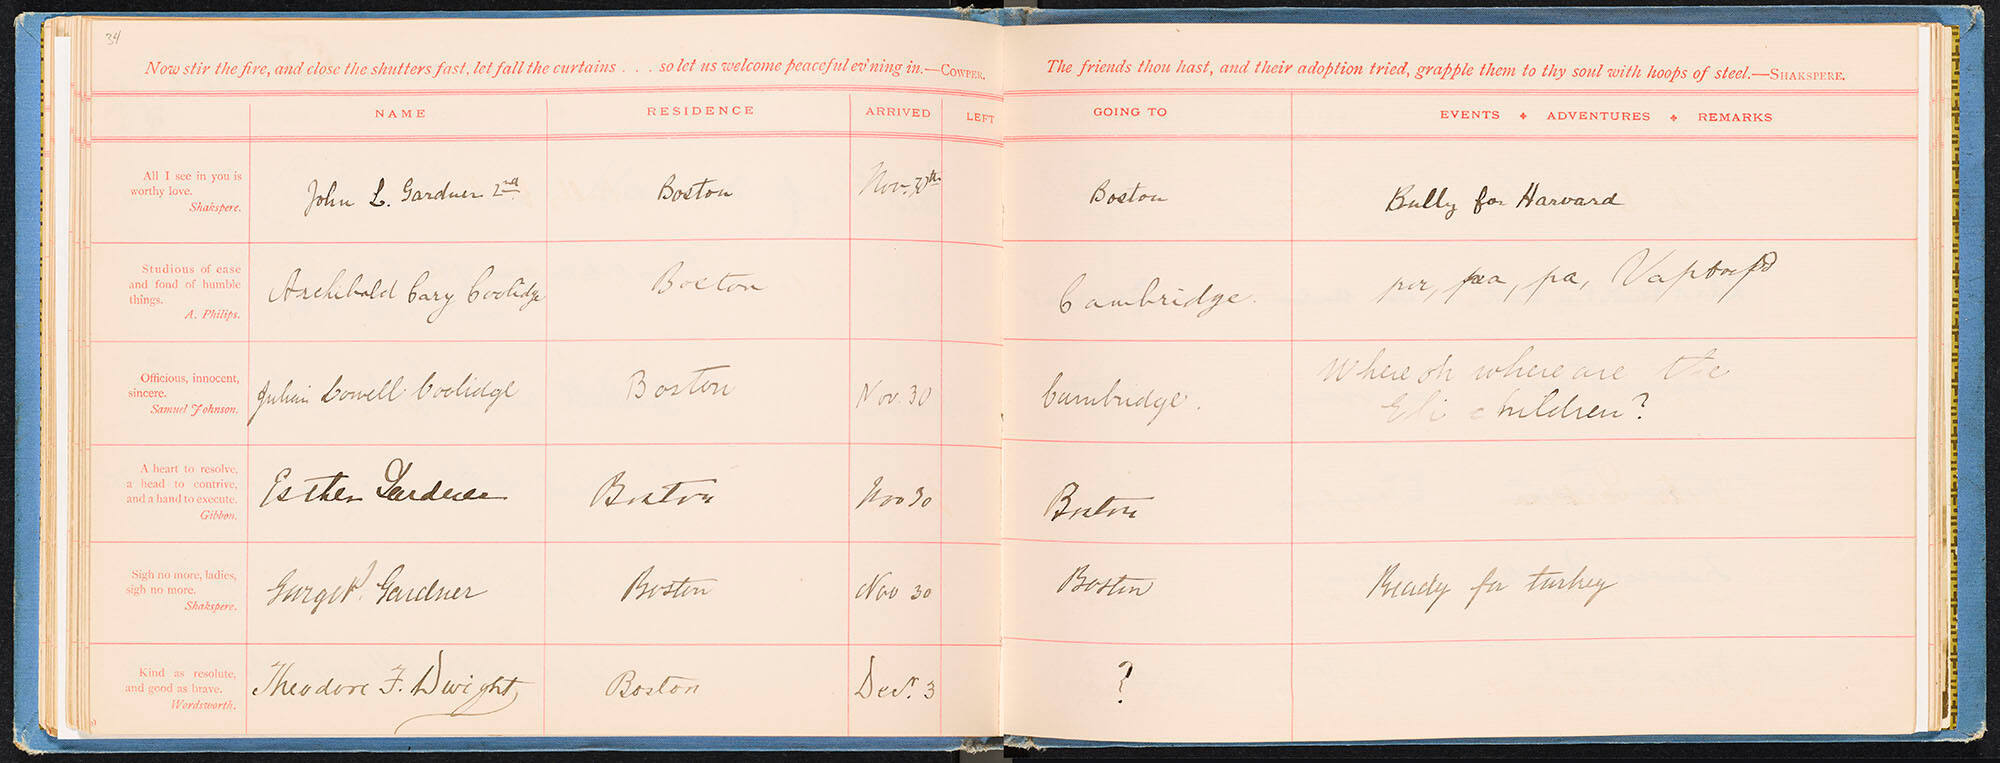 34
Now stir the fire, and close the shutters fast, let fall the curtains . . . so let us welcome peaceful ev'ning in.—COWPER.
The friends thou hast, and their adoption tried, grapple them to thy soul with hoops of steel.—SHAKSPERE.
NAME RESIDENCE ARRIVED LEFT GOING TO EVENTS ✦ ADVENTURES ✦ REMARKS
All I see in you is
worthy love.
Shakspere.
John L. Gardner 2nd Boston Nov. 30th Boston Bully for Harvard
Studious of ease
and fond of humble
things.
A. Philips.
Archibald Cary Coolidge Boston Cambridge. pa, pa,
Officious, innocent,
sincere.
Samuel Johnson.
Julian Lowell Coolidge Boston Nov. 30 Cambridge. Where oh where are the
Eli children?
A heart to resolve,
a head to contrive,
and a hand to execute.
Gibbon.
Esther Gardner Boston Nov 30 Boston
Sigh no more, ladies,
sigh no more.
Shakspere.
George P. Gardner Boston Nov 30 Boston Ready for turkey
Kind as resolute,
and good as brave.
Wordsworth.
Theodore F. Dwight Boston Dec. 3 ?